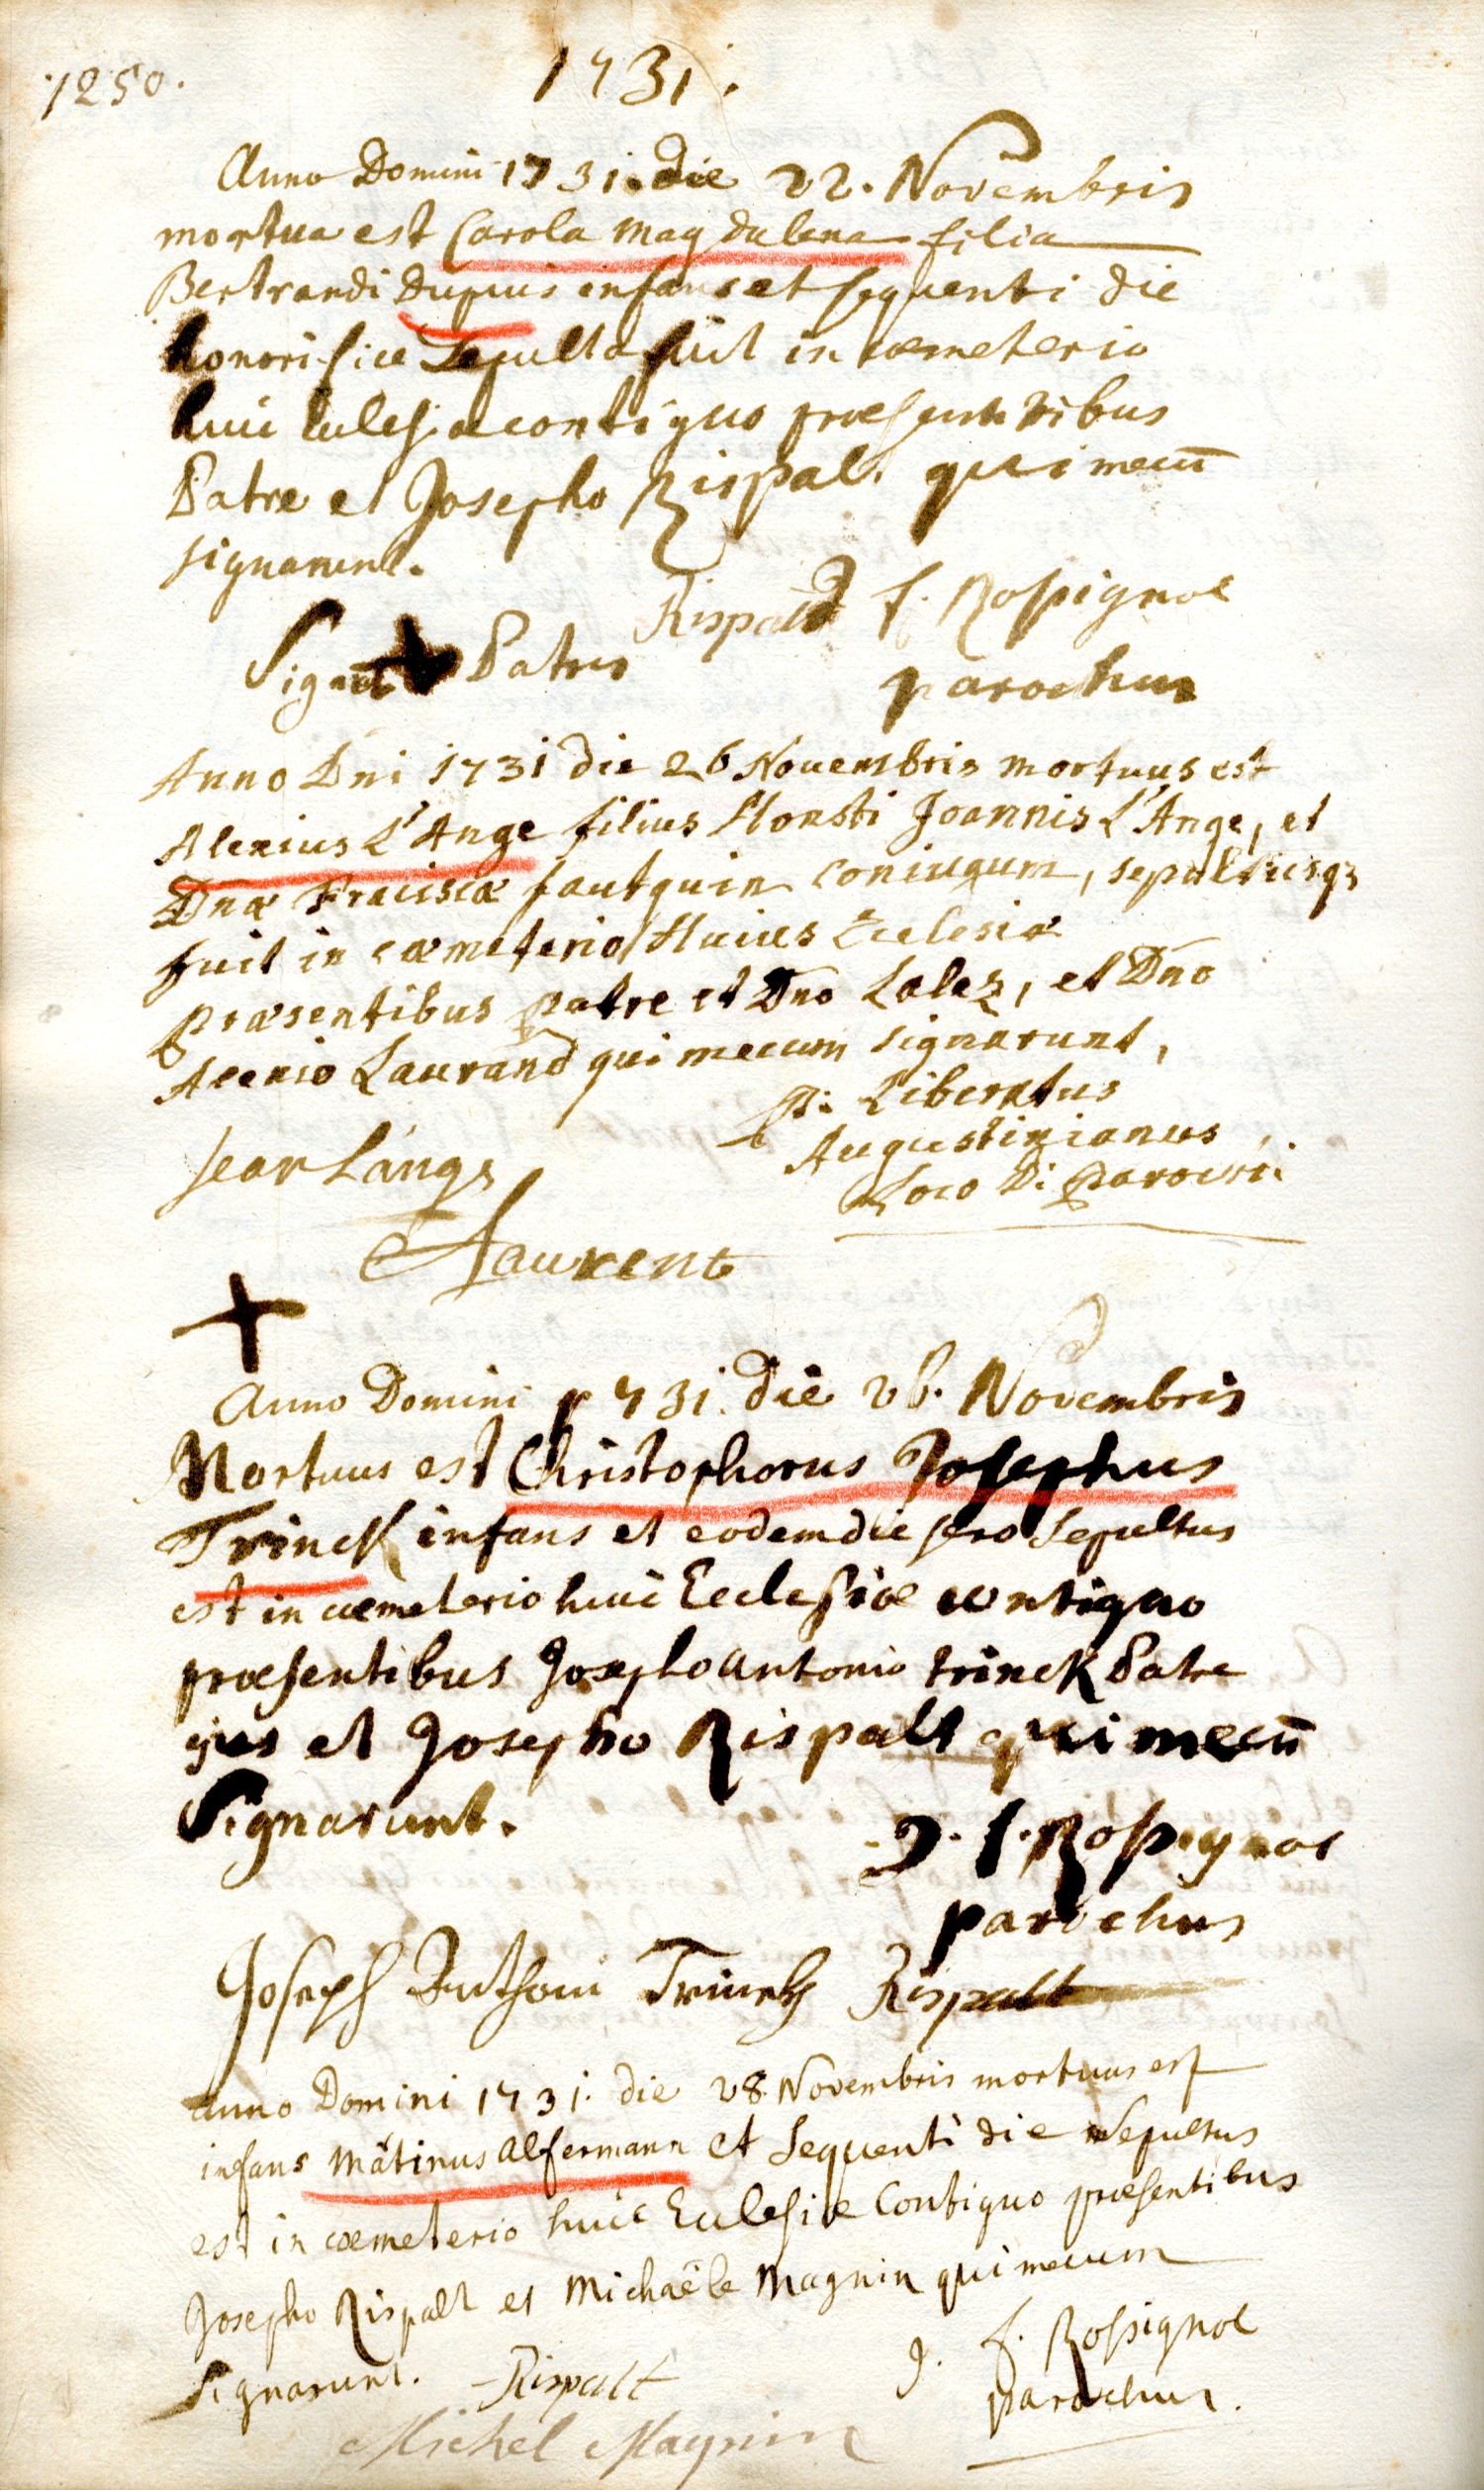 1250.
1731.
Anno Domini 1731. die 22. Novembris
mortua est Carola Magdalena filia
Bertrandi Dupuis infans et sequenti die
honorifice sepulta fuit in cœmeterio
huic Eclesiæ contiguo præsentibus
Patre et Josepho Rispalt qui mecū
signarunt.
Rispalt f. Rossignol
Signū + Patris
parochus
Anno Dni 1731 die 26 Novembris mortuus est
Alexius L'Ange filius Honsti Joannis L'Ange, et
Dnæ Fraciscæ fautquin coniugum, sepultusqz
fuit in cœmeterio Huius Ecclesiæ
præsentibus patre et Dno Lalez, et Dno
Alexio Laurand qui mecum signarunt,
P: Liberatus
Augustinianus
Loco Di Parochi
Jean Lange
Laurent
+
Anno Domini 1731. die 26. Novembris
Mortuus est Christophorus Josephus
Trinck infans et eodem die sero sepultus
est in cœmeterio huic Ecclesiæ contiguo
præsentibus Josepho antonio trinck Patre
ejus et Josepho Rispalt qui mecū
Signarunt.
J. f. Rossignol
parochus
Joseph Anthoni Trinck Rispalt
anno Domini 1731. die 28 Novembris mortuus est
infans Mātinus Alfermann et Sequenti die Sepultus
est in cœmeterio huic Eclesiæ Contiguo præsentibus
Josepho Rispalt et Michaële Magnin qui mecum
Signarunt. Rispalt
J. f. Rossignol
parochus.
Michel Magnin